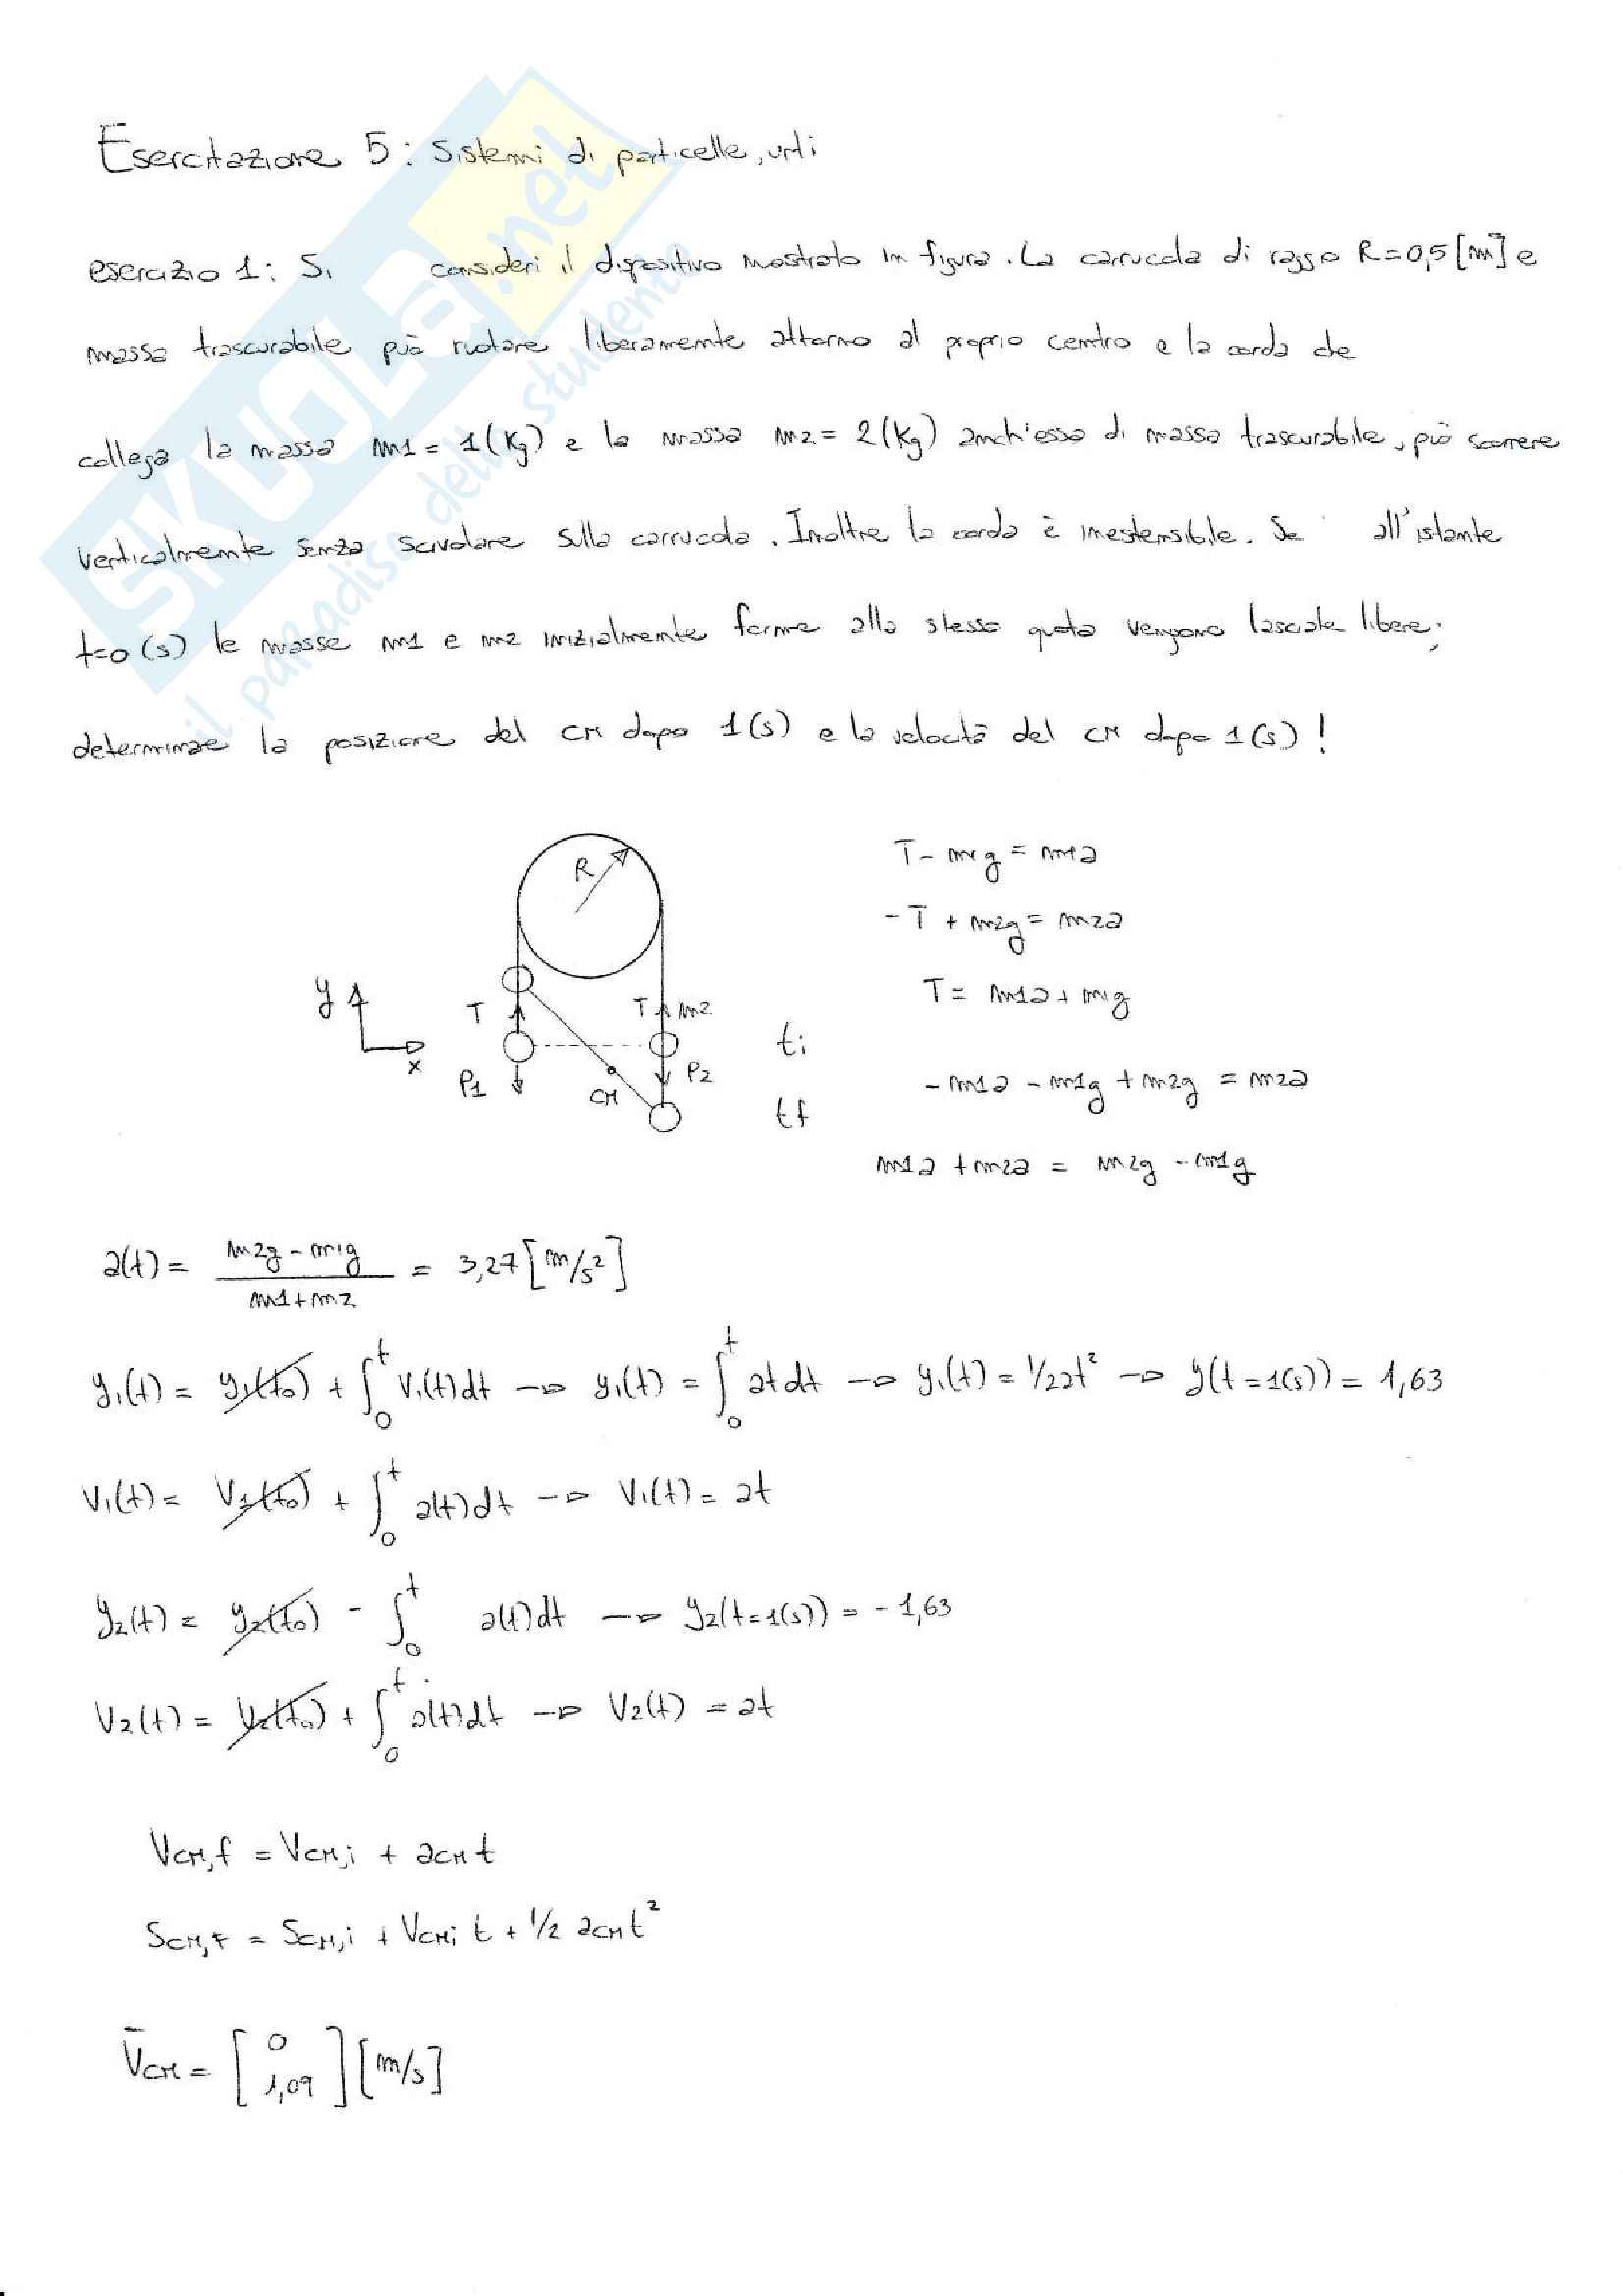 Esercitazione 5: Sistemi di particelle, urti
esercizio 1: Si consideri il dispositivo mostrato in figura. La carrucola di raggio R=0,5[m] e
massa trascurabile può ruotare liberamente attorno al proprio centro e la corda che
collega la massa m1 = 1(Kg) e la massa m2 = 2(Kg) anch'essa di massa trascurabile, può scorrere
verticalmente senza scivolare sulla carrucola. Inoltre la corda è inestensibile. Se all'istante
t=0(s) le masse m1 e m2 inizialmente ferme alla stessa quota vengono lasciate libere;
determinare la posizione del CM dopo 1(s) e la velocità del CM dopo 1(s)!
R
T - m1g = m1a
-T + m2g = m2a
T = m1a + m1g
y
x
T
T
m2
ti
P1
P2
CM
tf
-m1a - m1g + m2g = m2a
m1a + m2a = m2g - m1g
a(t) = (m2g - m1g)/(m1+m2) = 3,27 [m/s²]
y1(t) = y1(t0) + ∫0^t V1(t)dt → y1(t) = ∫0^t at dt → y1(t) = 1/2at² → y(t=1(s)) = 1,63
V1(t) = V1(t0) + ∫0^t a(t)dt → V1(t) = at
y2(t) = y2(t0) - ∫0^t a(t)dt → y2(t=1(s)) = -1,63
V2(t) = V2(t0) + ∫0^t a(t)dt → V2(t) = at
VCM,f = VCM,i + aCM t
SCM,f = SCM,i + VCMi t + 1/2 aCM t²
V̄CM = [0 1,09] [m/s]
SKUOLA.net
il paradiso dello studente